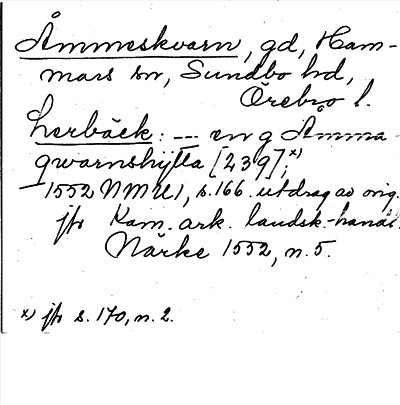 Åmmeskvarn, gd, Ham-
mars sn, Sundbo hd,
Örebro l.
Lerbäck: --- en g Ämma
qwarnshytta [239];x)
— 1552 NMU1, s. 166. utdrag av orig.
jfr Kam. ark. landsk.-handl.
Närke 1552, n. 5.
x) jfr s. 170, n. 2.